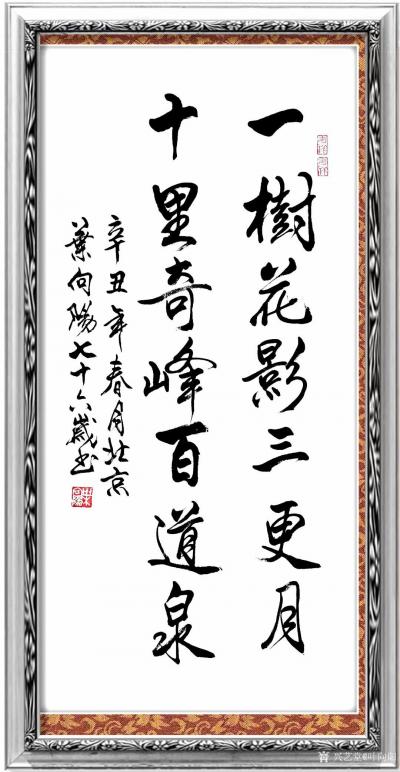 一樹花影三更月
十里奇峰百道泉
辛丑年春月北京
葉向陽七十六歲书
兴艺堂@叶向阳